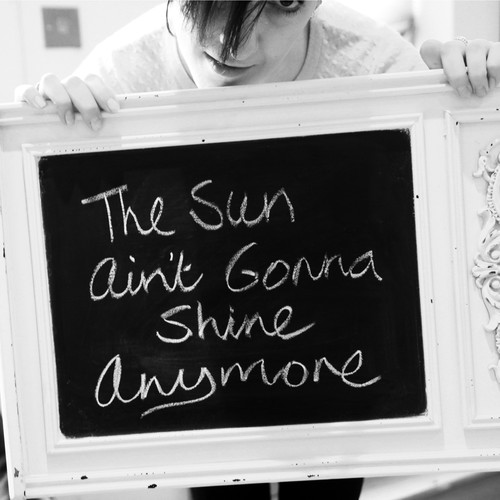 The Sun
ain't Gonna
Shine
anymore